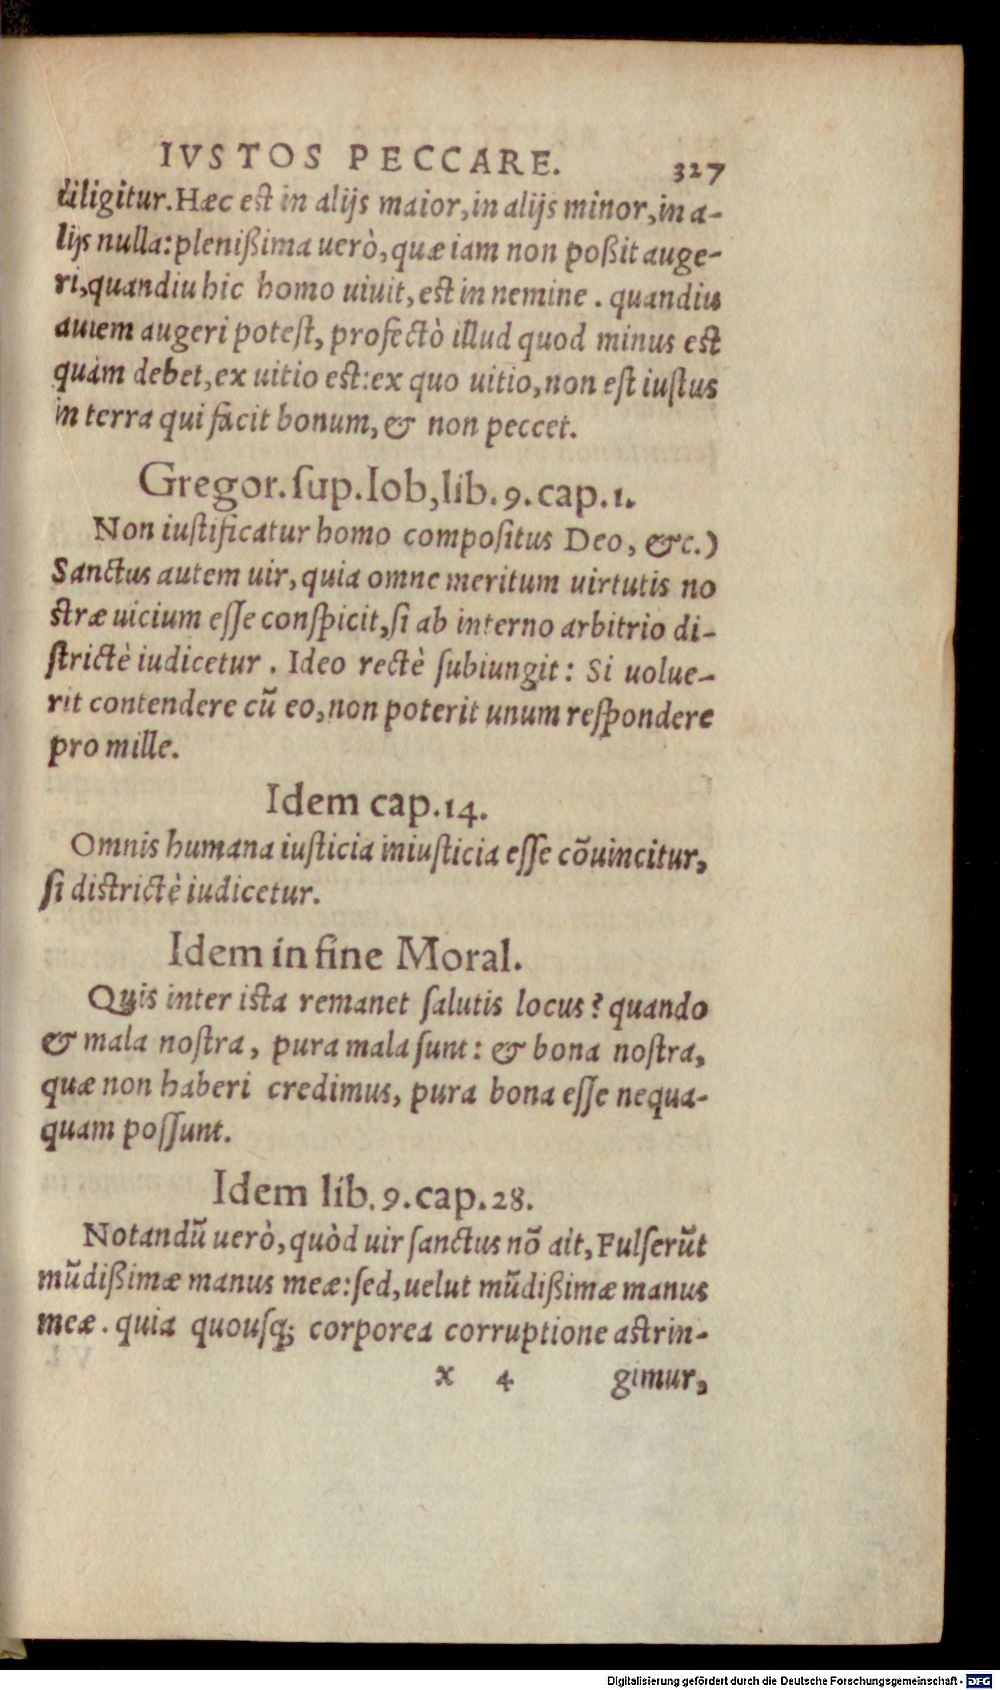 IVSTOS PECCARE. 327
diligitur. Hæc est in alijs maior, in alijs minor, in a-
lijs nulla: plenißima uerò, quæ iam non poßit auge-
ri, quandiu hic homo uiuit, est in nemine. quandiu
autem augeri potest, profectò illud quod minus est
quàm debet, ex uitio est: ex quo uitio, non est iustus
in terra qui facit bonum, & non peccet.
Gregor. sup. Iob, lib. 9. cap. 1.
Non iustificatur homo compositus Deo, &c.)
Sanctus autem uir, quia omne meritum uirtutis no
stræ uicium esse conspicit, si ab interno arbitrio di-
strictè iudicetur. Ideo rectè subiungit: Si uolue-
rit contendere cū eo, non poterit unum respondere
pro mille.
Idem cap. 14.
Omnis humana iusticia iniusticia esse cōuincitur,
si districtè iudicetur.
Idem in fine Moral.
Quis inter ista remanet salutis locus? quando
& mala nostra, pura mala sunt: & bona nostra,
quæ non haberi credimus, pura bona esse nequa-
quam possunt.
Idem lib. 9. cap. 28.
Notandū uerò, quòd uir sanctus nō ait, Fulserūt
mūdißimæ manus meæ: sed, uelut mūdißimæ manus
meæ. quia quousq; corporea corruptione astrin-
x 4 gimur,
Digitalisierung gefördert durch die Deutsche Forschungsgemeinschaft - DFG